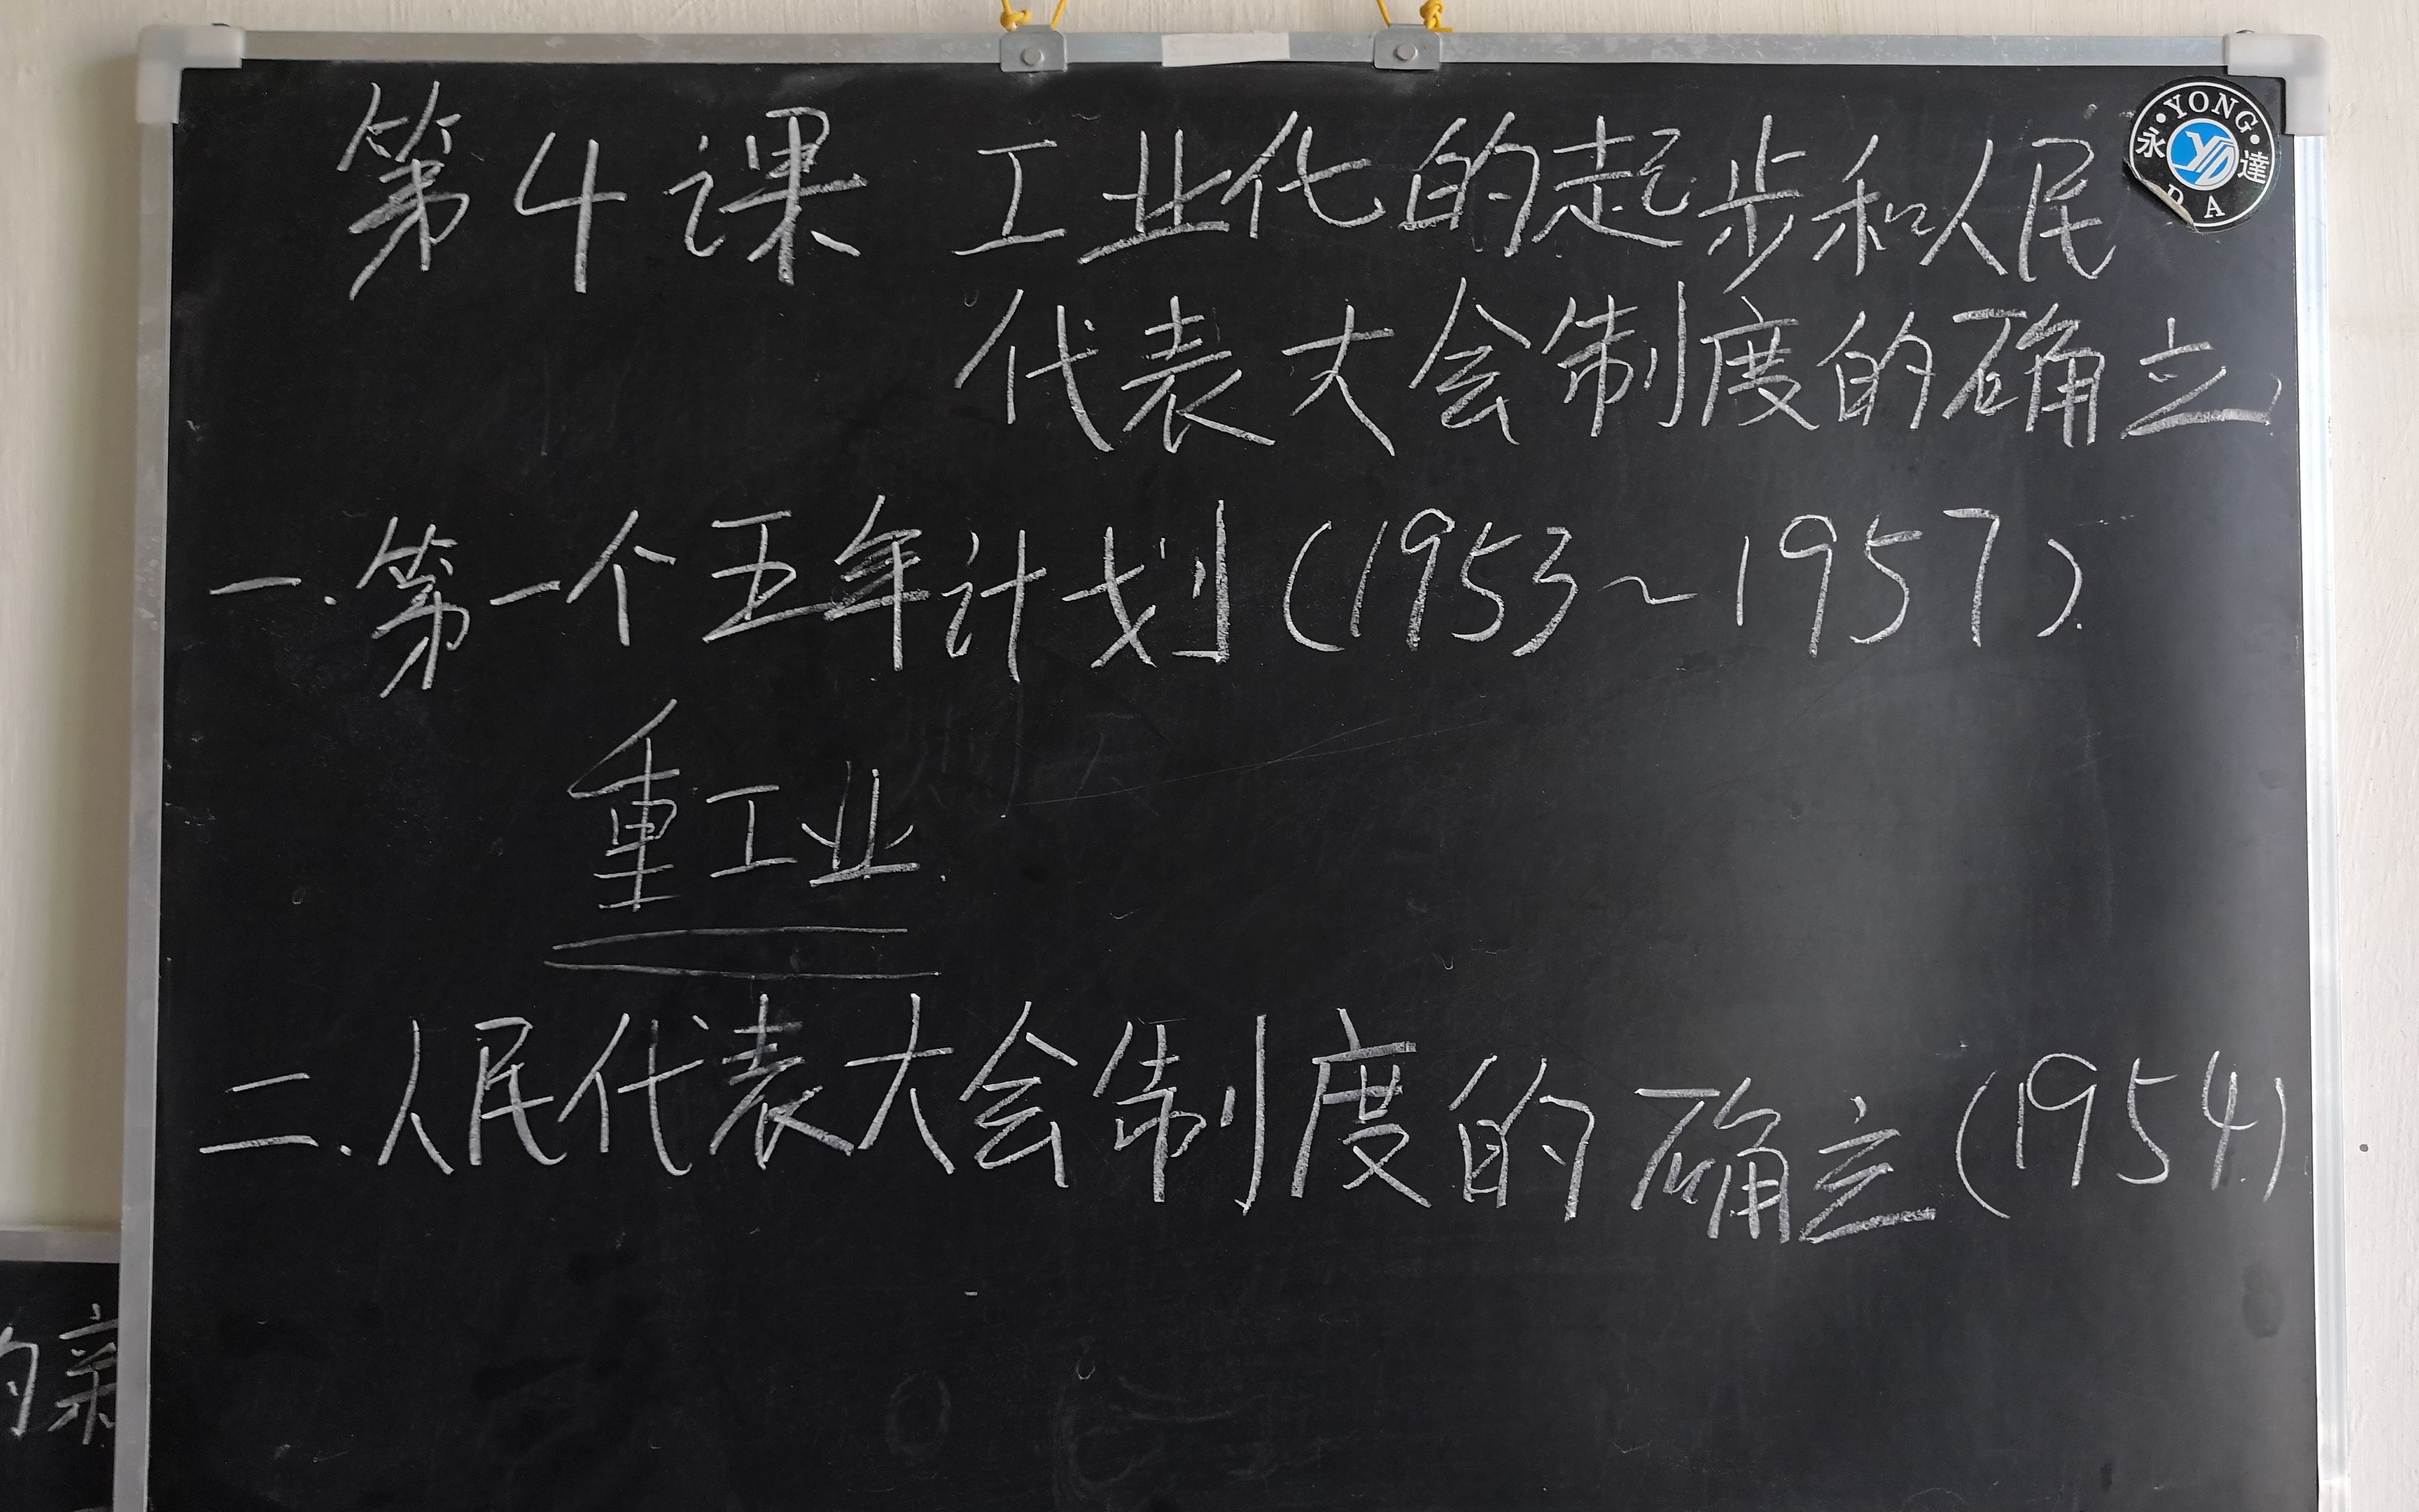 第4课 工业化的起步和人民
代表大会制度的确立
一.第一个五年计划(1953~1957).
重工业.
二.人民代表大会制度的确立(1954)
YONG
永 達
DA
YD
的亲